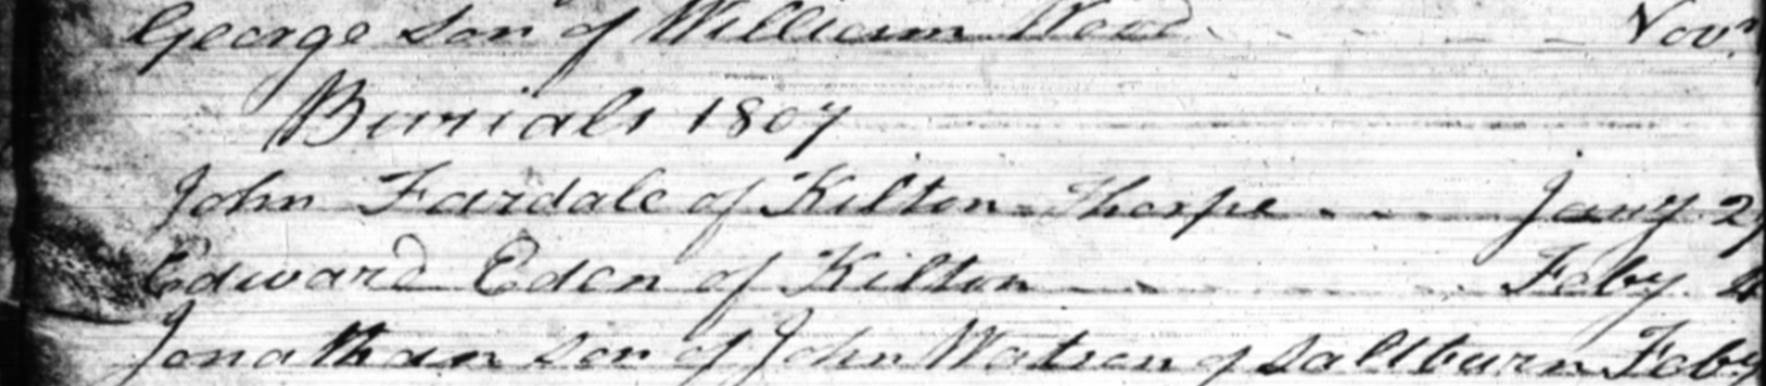 George Son of William Wood - - - - - Novr
Burials 1807
John Fairdale of Kilton Thorpe - - - Jany 2
Edward Eden of Kilton - - - - - Feby 4
Jonathan son of John Watson of Saltburn Feby